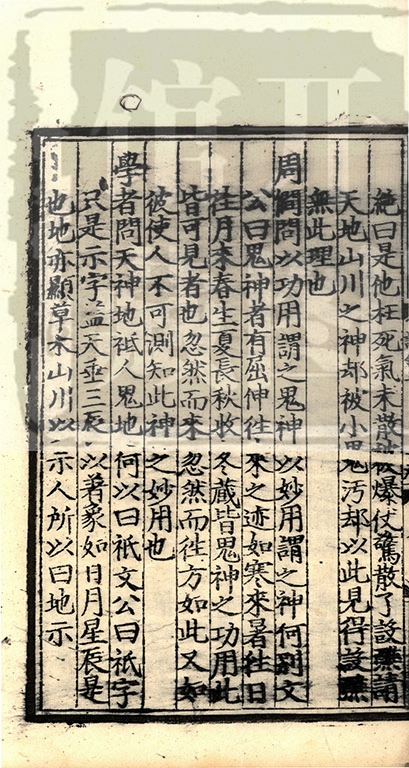 絶曰是他枉死氣未散被爆仗驚散了設醮請
天地山川之神却被小鬼汚却以此見得設醮
無此理也
周問問以功用謂之鬼神以妙用謂之神何别文
公曰鬼神者有屈伸徃來之迹如寒來暑徃日
徃月來春生夏長秋收冬藏皆鬼神之功用此
皆可見者也忽然而來忽然而徃方如此又如
彼使人不可測知此神之妙用也
學者問天神地祗人鬼地何以曰祗文公曰祗字
只是示字盖天垂三辰以著象如日月星辰是
也地亦顯草木山川以示人所以曰地示